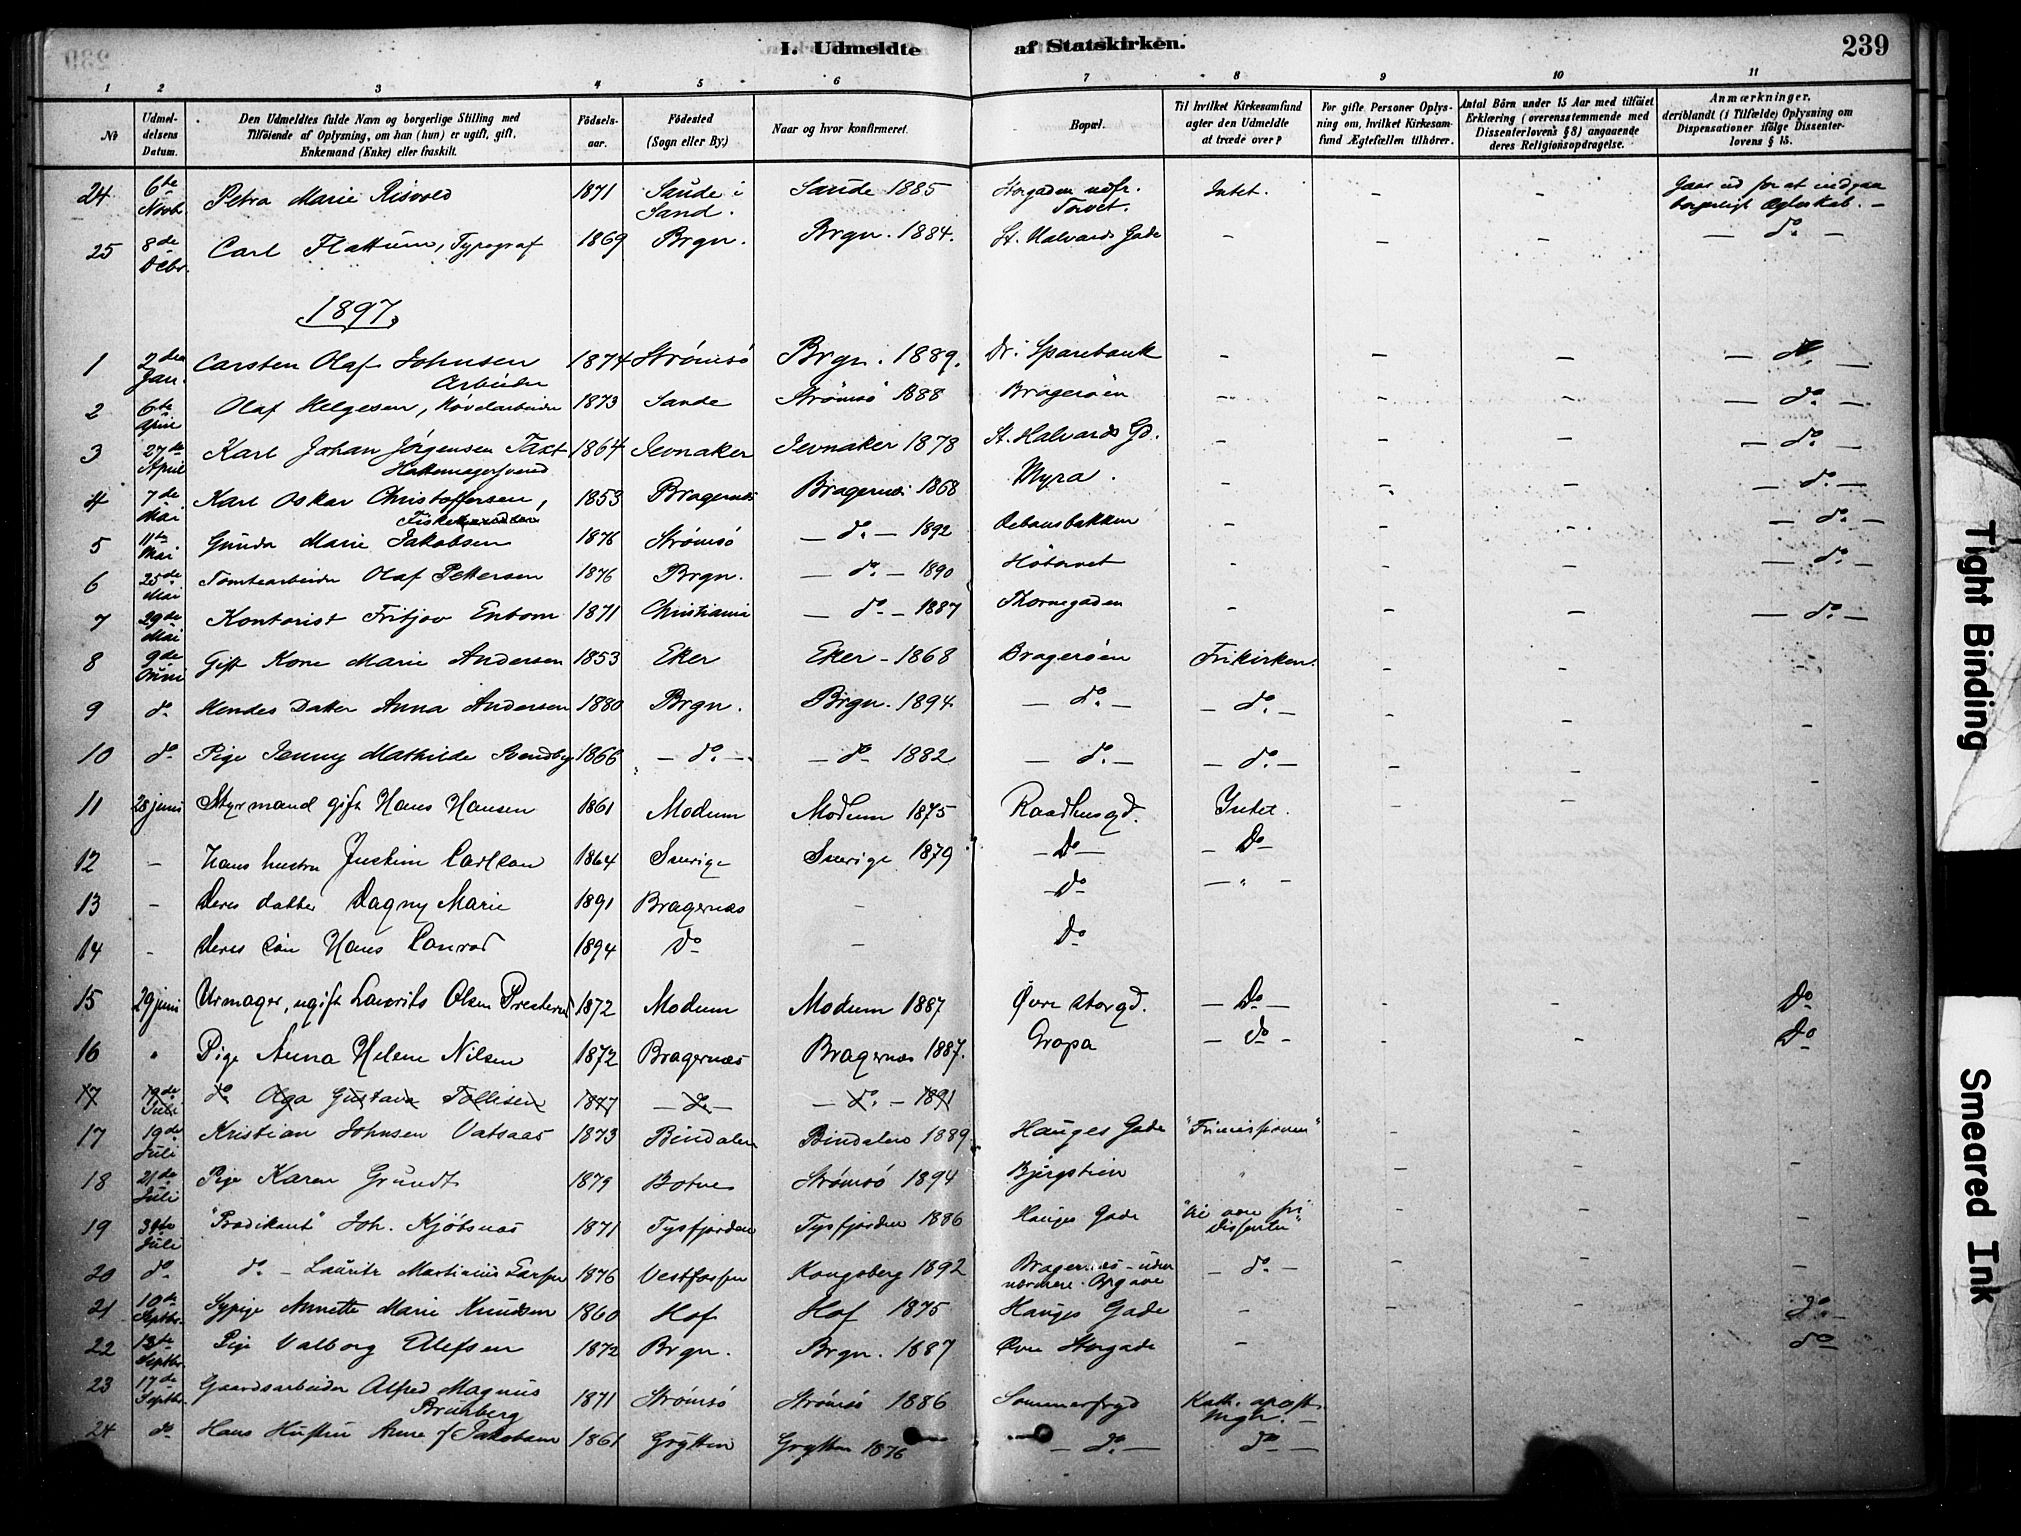 I. Udmeldte af Statskirken. 239
1 2 3 4 5 6 7 8 9 10 11
№ Udmeldelsens Datum. Den Udmeldtes fulde Navn og borgerlige Stilling med Tilföiende af Oplysning, om han (hun) er ugift, gift, Enkemand (Enke) eller fraskilt. Födselsaar. Födested (Sogn eller By.) Naar og hvor konfirmeret. Bopæl. Til hvilket Kirkesamfund agter den Udmeldte at træde over? For gifte Personer Oplysning om, hvilket Kirkesamfund Ægtefællen tilhörer. Antal Börn under 15 Aar med tilföiet Erklæring (overensstemmende med Dissenterlovens § 8) angaaende deres Religionsopdragelse. Anmærkninger, deriblandt (i Tilfælde) Oplysning om Dispensationer ifölge Dissenterlovens § 15.
24 6te Novb. Petra Marie Risvold 1871 Saude i Sand. Saude 1885 Storgaden udfr. Torvet. Intet. - - Gaar ud for at indgaa borgerligt Ægteskab. -
25 8de Decbr. Carl Flattum, Typograf 1869 Brgn. Brgn. 1884. St. Halvards Gade - - - - do. -
1897.
1 2den Jan. Carsten Olaf Johnsen Arbeider 1874 Strømsö Brgn. 1889. Dr. Sparebank - - - - do -
2 6te April Olaf Helgesen, Høvelarbeider 1873 Sande Strömsö 1888 Bragerøen - - - - do. -
3 27de April Karl Johan Jörgensen Taxt Hattemagersvend 1864 Jevnaker Jevnaker 1878 St. Halvards Gd. - - - - do. -
4 7de Mai Karl Oskar Christoffersen, Fiskehandler 1853 Bragernæs Bragernæs 1868 Myra. - - - - do. -
5 11te Mai Gunda Marie Jakobsen 1876 Strømsö - do. - 1892 Cebansbakken - - - - do. -
6 25de Mai Tomtearbeider Olaf Pettersen 1876 Brgn. - do. - 1890 Hötorvet - - - - do. -
7 29de Mai Kontorist Fritjov Enbom 1871 Christiania - do - 1887 Thornegaden - - - - do. -
8 9de Juni Gift Kone Marie Andersen 1853 Eker Eker - 1868 Bragerøen Frikirken. - -
9 do. Hendes Datter Anna Andersen 1880 Brgn. Brgn. 1894 - do. - - do. - - - -
10 do Pige Jenny Mathilde Svendby 1866 - do. - - do - 1882 - do. - - do. - - - -
11 28 juni Styrmand gift Hans Hansen 1861 Modum Modum 1875 Raadhusgd. Intet. - -
12 - Hans hustru Justine Carlson 1864 Sverige Sverige 1879 - Do - - Do -
13 - Deres datter Dagny Marie 1891 Bragernæs - - Do - " -
14 - Deres søn Hans Conrad 1894 Do - Do
15 29 juni Urmager, ugift Laurits Olsen 1872 Modum Modum 1887 Øvre storgd. - Do - - - Do
16 " Pige Anna Helene Nilsen 1872 Bragernæs Bragernæs 1887. Gropa - do - - - Do
17 19de Juli do Olga Gustava Tollisen 1877 - do. - - do. - 1891
17 19de Juli Kristian Johnsen Vatsaas 1873 Bindalen Bindalen 1889. Hauges Gade "Frimissionen" - -
18 21de Juli Pige Karen Grundt 1879 Botne Strømsö 1894 Bjergstien " - - -
19 31te Juli "Prædikant" Joh. Kjöbsnæs 1871 Tysfjorden Tysfjorden 1886 Hauges Gade - - -
20 do. do. - Lauritz Martinius Larsen 1876 Vestfossen Kongsberg 1892 Bragernæs - uden nærmere Opgave - do. - - - -
21 10de Septbr. Sypige Annette Marie Knudsen 1860 Hof Hof 1875 Hauges Gade - - - do. -
22 13de Septbr. Pige Valborg Olefsen 1872 Brgn. Brgn. 1887 Øvre Storgade - do
23 17de Septbr. Gaardsarbeider Alfred Magnus Brunberg 1871 Strømsö Strømsö 1886 Sommerfryd Kath. apost. Mgh. -
24 do Hans Hustru Anne f. Jakobsen 1861 Grytten Grytten 1876 - do. - do -
Tight Binding
Smeared Ink